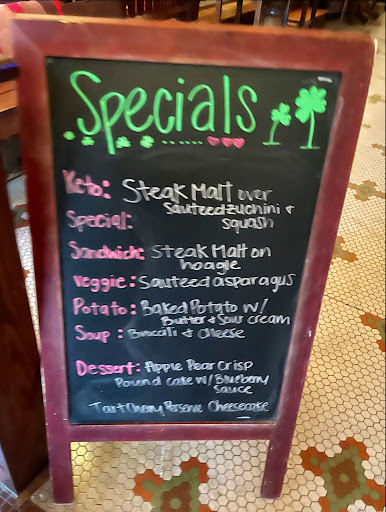 Specials
Keto: Steak Malt over
Sauteed zuchini +
squash
Special:
Sandwich: Steak Malt on
hoagie
Veggie: Sauteed asparagus
Potato: Baked Potato w/
Butter + Sour cream
Soup: Broccili + cheese
Dessert: Apple Pear Crisp
Pound cake w/ Blueberry
Sauce
Tart Cherry Cheesecake